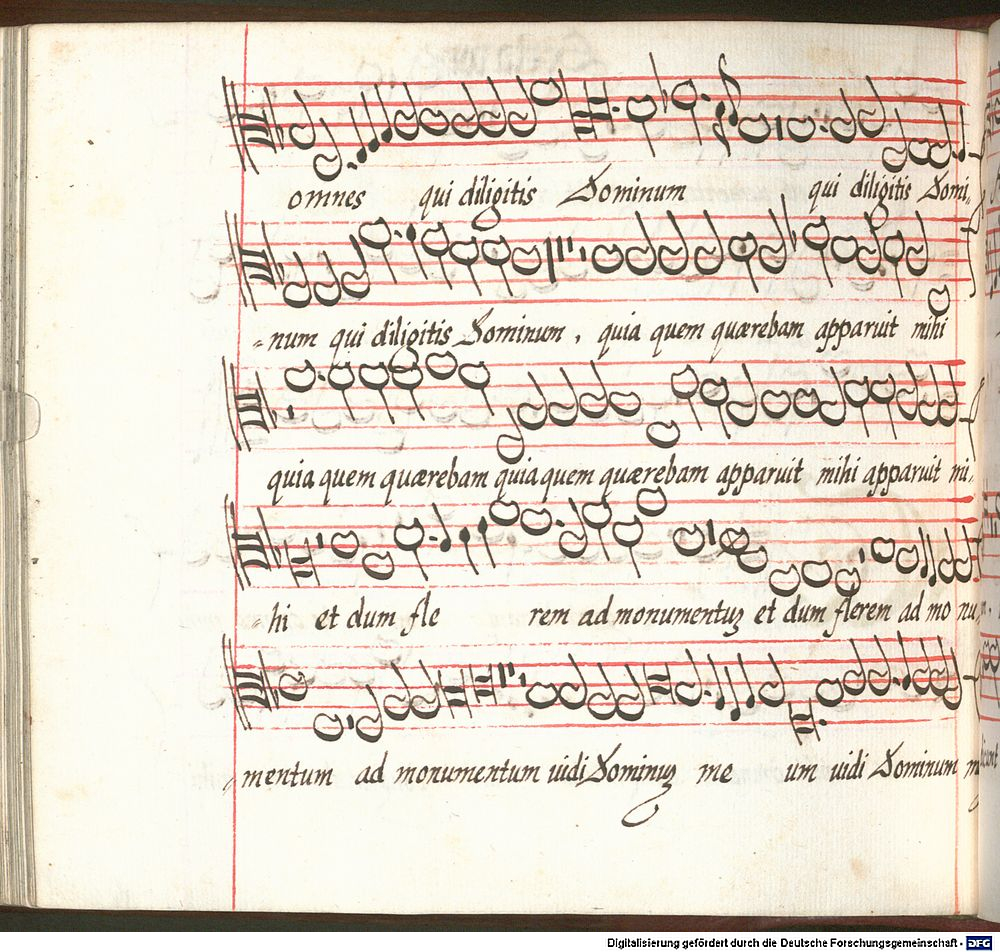 omnes qui diligitis Dominum qui diligitis Domi-
-num qui diligitis Dominum, quia quem quærebam apparuit mihi
quia quem quærebam quia quem quærebam apparuit mihi apparuit mi-
-hi et dum fle rem ad monumentuz et dum flerem ad mo nu-
-mentum ad monumentum uidi Dominuz me um uidi Dominum m
Digitalisierung gefördert durch die Deutsche Forschungsgemeinschaft - DFG